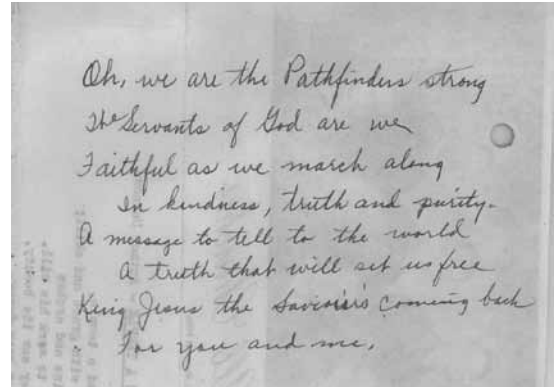 Oh, we are the Pathfinders strong
The Servants of God are we
Faithful as we march along
In kindness, truth and purity.
A message to tell to the world
A truth that will set us free
King Jesus the Saviour's coming back
For you and me.